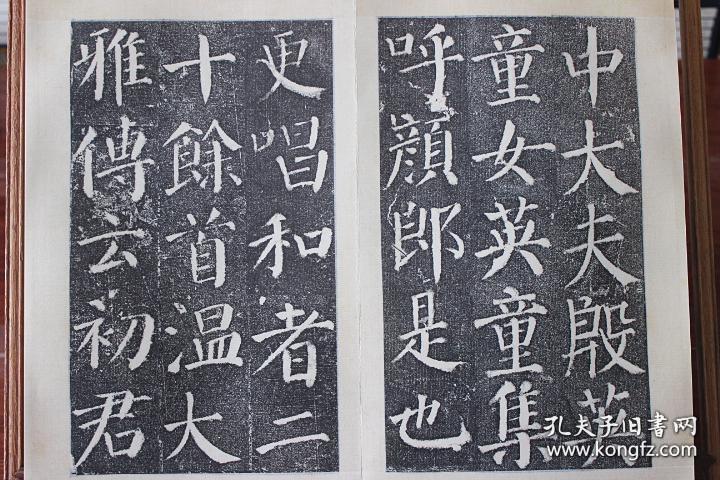 中大夫殷英
童女英童集
呼顏郎是也
更唱和者二
十餘首温大
雅傳云初君
孔夫子旧书网
www.kongfz.com